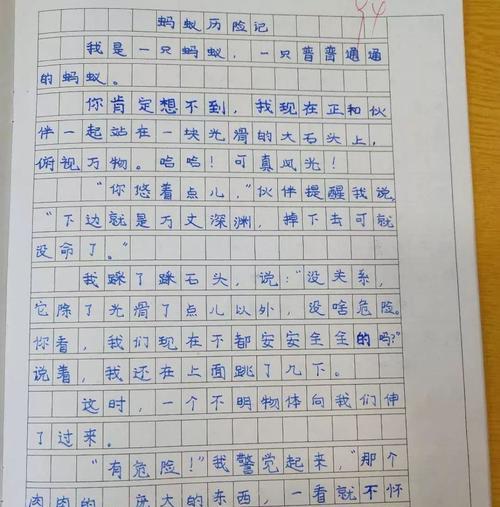 蚂蚁历险记
我是一只蚂蚁，一只普普通通
的蚂蚁。
你肯定想不到，我现在正和伙
伴一起站在一块光滑的大石头上，
俯视万物。哈哈！可真风光！
“你悠着点儿，”伙伴提醒我说，
“下边就是万丈深渊，掉下去可就
没命了。”
我踩了踩石头，说：“没关系，
它除了光滑了点儿以外，没啥危险。
你看，我们现在不都安安全全的吗？”
说着，我还在上面跳了几下。
这时，一个不明物体向我们伸
了过来。
“有危险！”我警觉起来，“那个
肉肉的、庞大的东西，一看就不怀